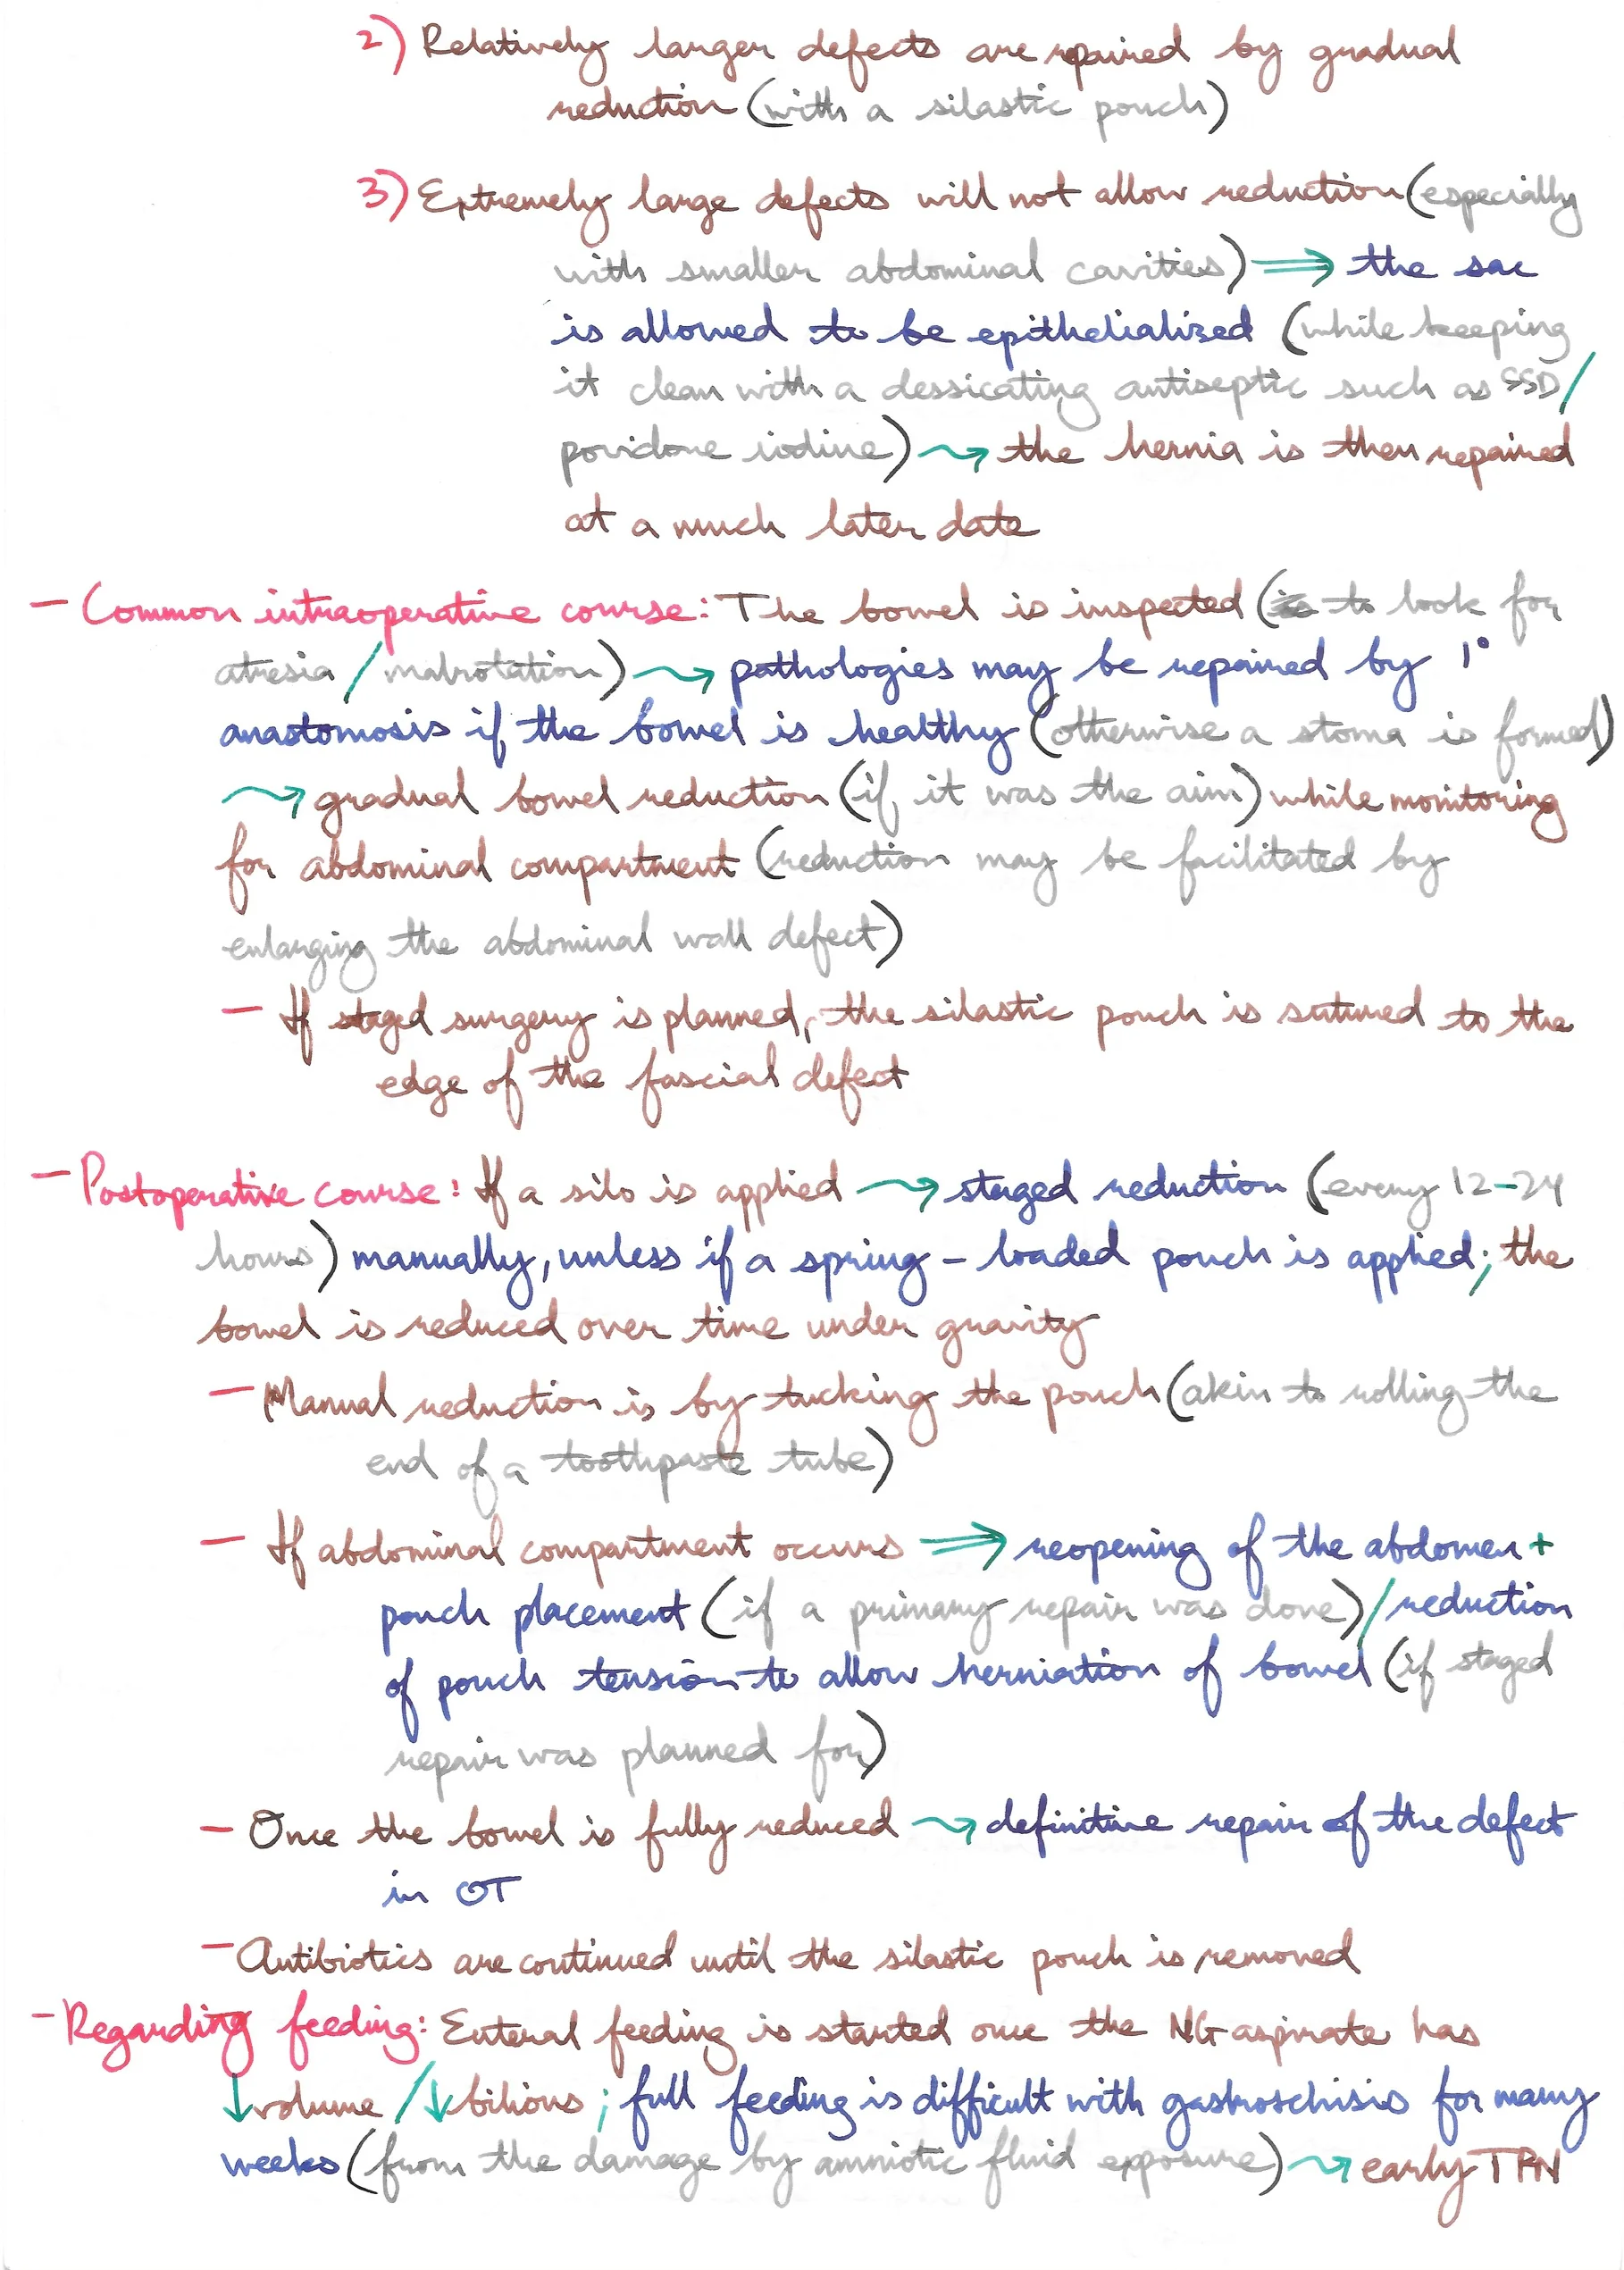 2) Relatively larger defects are repaired by gradual
reduction (with a silastic pouch)
3) Extremely large defects will not allow reduction (especially
with smaller abdominal cavities) ⟹ the sac
is allowed to be epithelialized (while keeping
it clean with a dessicating antiseptic such as SSD/
povidone iodine) ⇝ the hernia is then repaired
at a much later date
- Common intraoperative course: The bowel is inspected (to look for
atresia / malrotation) ⇝ pathologies may be repaired by 1°
anastomosis if the bowel is healthy (otherwise a stoma is formed)
⇝ gradual bowel reduction (if it was the aim) while monitoring
for abdominal compartment (reduction may be facilitated by
enlarging the abdominal wall defect)
- If staged surgery is planned, the silastic pouch is sutured to the
edge of the fascial defect
- Postoperative course: If a silo is applied ⇝ staged reduction (every 12-24
hours) manually, unless if a spring - loaded pouch is applied; the
bowel is reduced over time under gravity
- Manual reduction is by tucking the pouch (akin to rolling the
end of a toothpaste tube)
- If abdominal compartment occurs ⟹ reopening of the abdomen +
pouch placement (if a primary repair was done) / reduction
of pouch tension to allow herniation of bowel (if staged
repair was planned for)
- Once the bowel is fully reduced ⇝ definitive repair of the defect
in OT
- Antibiotics are continued until the silastic pouch is removed
- Regarding feeding: Enteral feeding is started once the NG aspirate has
↓volume / ↓bilious ; full feeding is difficult with gastroschisis for many
weeks (from the damage by amniotic fluid exposure) ⇝ early TPN